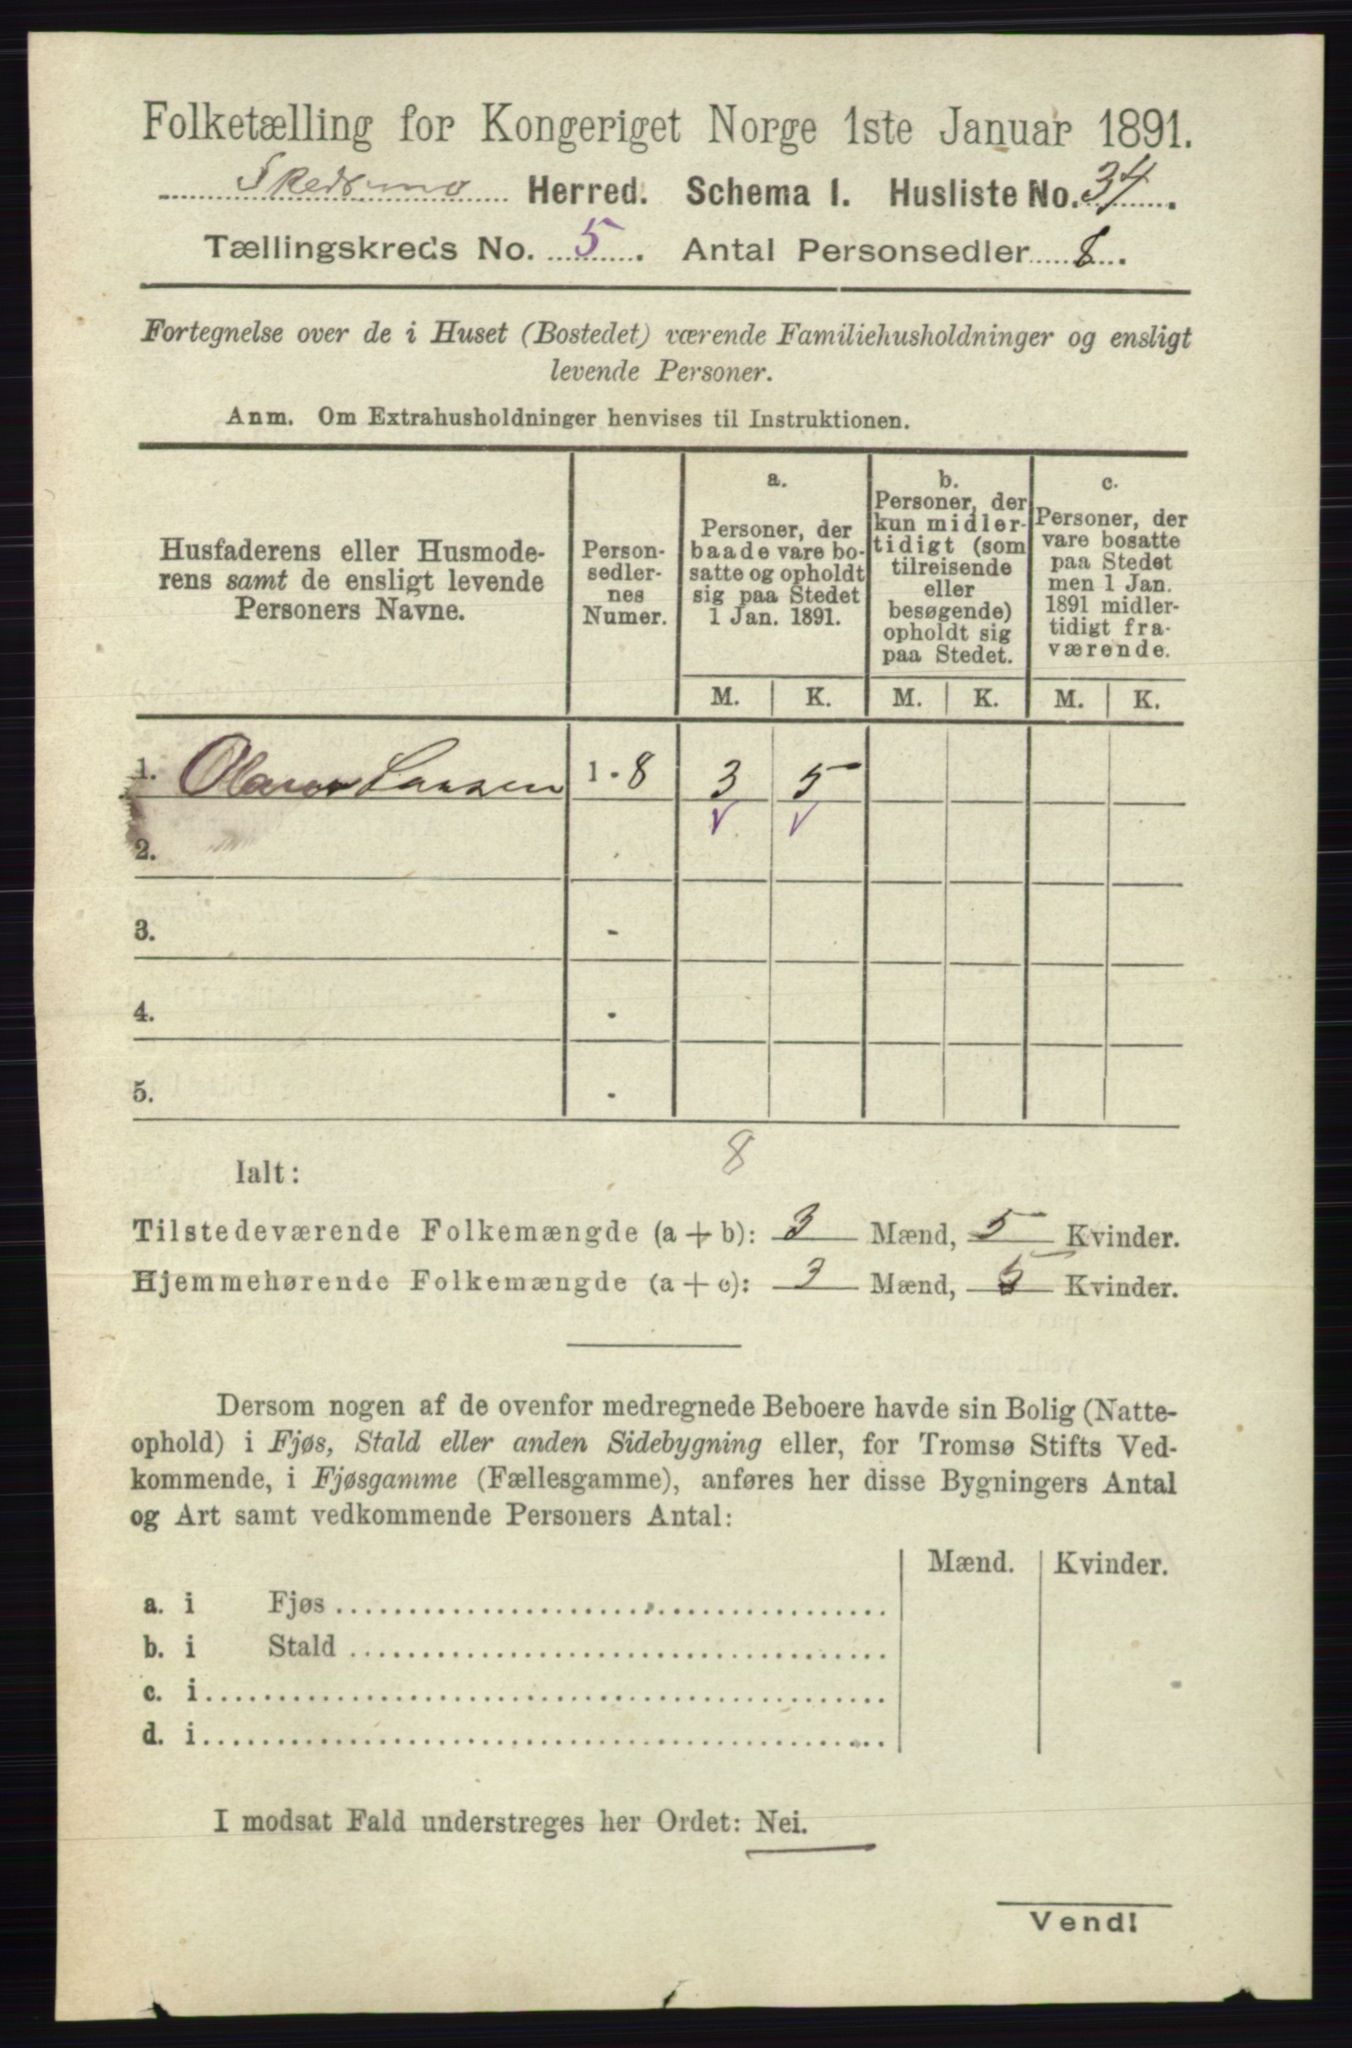 Folketælling for Kongeriget Norge 1ste Januar 1891.
Skedsmo Herred. Schema I. Husliste No. 34.
Tællingskreds No. 5. Antal Personsedler 8.
Fortegnelse over de i Huset (Bostedet) værende Familiehusholdninger og ensligt
levende Personer.
Anm. Om Extrahusholdninger henvises til Instruktionen.
Husfaderens eller Husmode-
rens samt de ensligt levende
Personers Navne.
Person-
sedler-
nes
Numer.
a.
Personer, der
baade vare bo-
satte og opholdt
sig paa Stedet
1 Jan. 1891.
b.
Personer, der
kun midler-
tidigt (som
tilreisende
eller
besøgende)
opholdt sig
paa Stedet.
c.
Personer, der
vare bosatte
paa Stedet
men 1 Jan.
1891 midler-
tidigt fra-
værende.
M. K. M. K. M. K.
1. Olaves Larsen 1 - 8 3 5
2.
3. -
4. -
5. -
8
Ialt:
Tilstedeværende Folkemængde (a + b): 3 Mænd, 5 Kvinder.
Hjemmehørende Folkemængde (a + c): 3 Mænd, 5 Kvinder.
Dersom nogen af de ovenfor medregnede Beboere havde sin Bolig (Natte-
ophold) i Fjøs, Stald eller anden Sidebygning eller, for Tromsø Stifts Ved-
kommende, i Fjøsgamme (Fællesgamme), anføres her disse Bygningers Antal
og Art samt vedkommende Personers Antal:
Mænd. Kvinder.
a. i Fjøs
b. i Stald
c. i
d. i
I modsat Fald understreges her Ordet: Nei.
Vend!